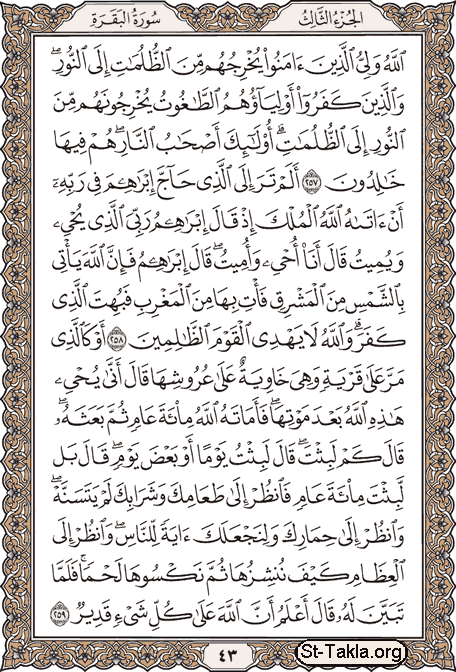 الجزء الثالث
سورة البقرة
ٱللَّهُ وَلِيُّ ٱلَّذِينَ ءَامَنُوا۟ يُخْرِجُهُم مِّنَ ٱلظُّلُمَٰتِ إِلَى ٱلنُّورِ ۖ
وَٱلَّذِينَ كَفَرُوٓا۟ أَوْلِيَآؤُهُمُ ٱلطَّٰغُوتُ يُخْرِجُونَهُم مِّنَ
ٱلنُّورِ إِلَى ٱلظُّلُمَٰتِ ۗ أُو۟لَٰٓئِكَ أَصْحَٰبُ ٱلنَّارِ ۖ هُمْ فِيهَا
خَٰلِدُونَ ﴿٢٥٧﴾ أَلَمْ تَرَ إِلَى ٱلَّذِى حَآجَّ إِبْرَٰهِۦمَ فِى رَبِّهِۦٓ
أَنْ ءَاتَىٰهُ ٱللَّهُ ٱلْمُلْكَ إِذْ قَالَ إِبْرَٰهِۦمُ رَبِّىَ ٱلَّذِى يُحْىِۦ
وَيُمِيتُ قَالَ أَنَا۠ أُحْىِۦ وَأُمِيتُ ۖ قَالَ إِبْرَٰهِۦمُ فَإِنَّ ٱللَّهَ يَأْتِى
بِٱلشَّمْسِ مِنَ ٱلْمَشْرِقِ فَأْتِ بِهَا مِنَ ٱلْمَغْرِبِ فَبُهِتَ ٱلَّذِى
كَفَرَ ۗ وَٱللَّهُ لَا يَهْدِى ٱلْقَوْمَ ٱلظَّٰلِمِينَ ﴿٢٥٨﴾ أَوْ كَٱلَّذِى
مَرَّ عَلَىٰ قَرْيَةٍ وَهِىَ خَاوِيَةٌ عَلَىٰ عُرُوشِهَا قَالَ أَنَّىٰ يُحْىِۦ
هَٰذِهِ ٱللَّهُ بَعْدَ مَوْتِهَا ۖ فَأَمَاتَهُ ٱللَّهُ مِا۟ئَةَ عَامٍ ثُمَّ بَعَثَهُۥ ۖ
قَالَ كَمْ لَبِثْتَ ۖ قَالَ لَبِثْتُ يَوْمًا أَوْ بَعْضَ يَوْمٍ ۖ قَالَ بَل
لَّبِثْتَ مِا۟ئَةَ عَامٍ فَٱنظُرْ إِلَىٰ طَعَامِكَ وَشَرَابِكَ لَمْ يَتَسَنَّهْ ۖ
وَٱنظُرْ إِلَىٰ حِمَارِكَ وَلِنَجْعَلَكَ ءَايَةً لِّلنَّاسِ ۖ وَٱنظُرْ إِلَى
ٱلْعِظَامِ كَيْفَ نُنشِزُهَا ثُمَّ نَكْسُوهَا لَحْمًا ۚ فَلَمَّا
تَبَيَّنَ لَهُۥ قَالَ أَعْلَمُ أَنَّ ٱللَّهَ عَلَىٰ كُلِّ شَىْءٍ قَدِيرٌ ﴿٢٥٩﴾
٤٣
St-Takla.org